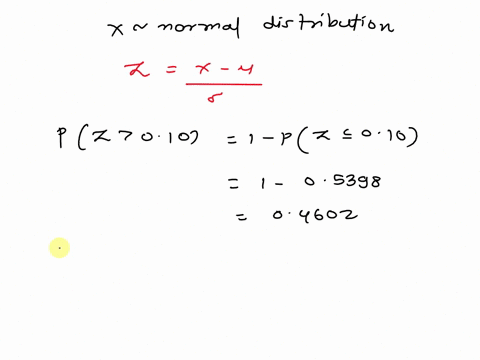 x ~ normal distribution
z = x - μ / σ
P(z > 0.10) = 1 - P(z ≤ 0.10)
= 1 - 0.5398
= 0.4602